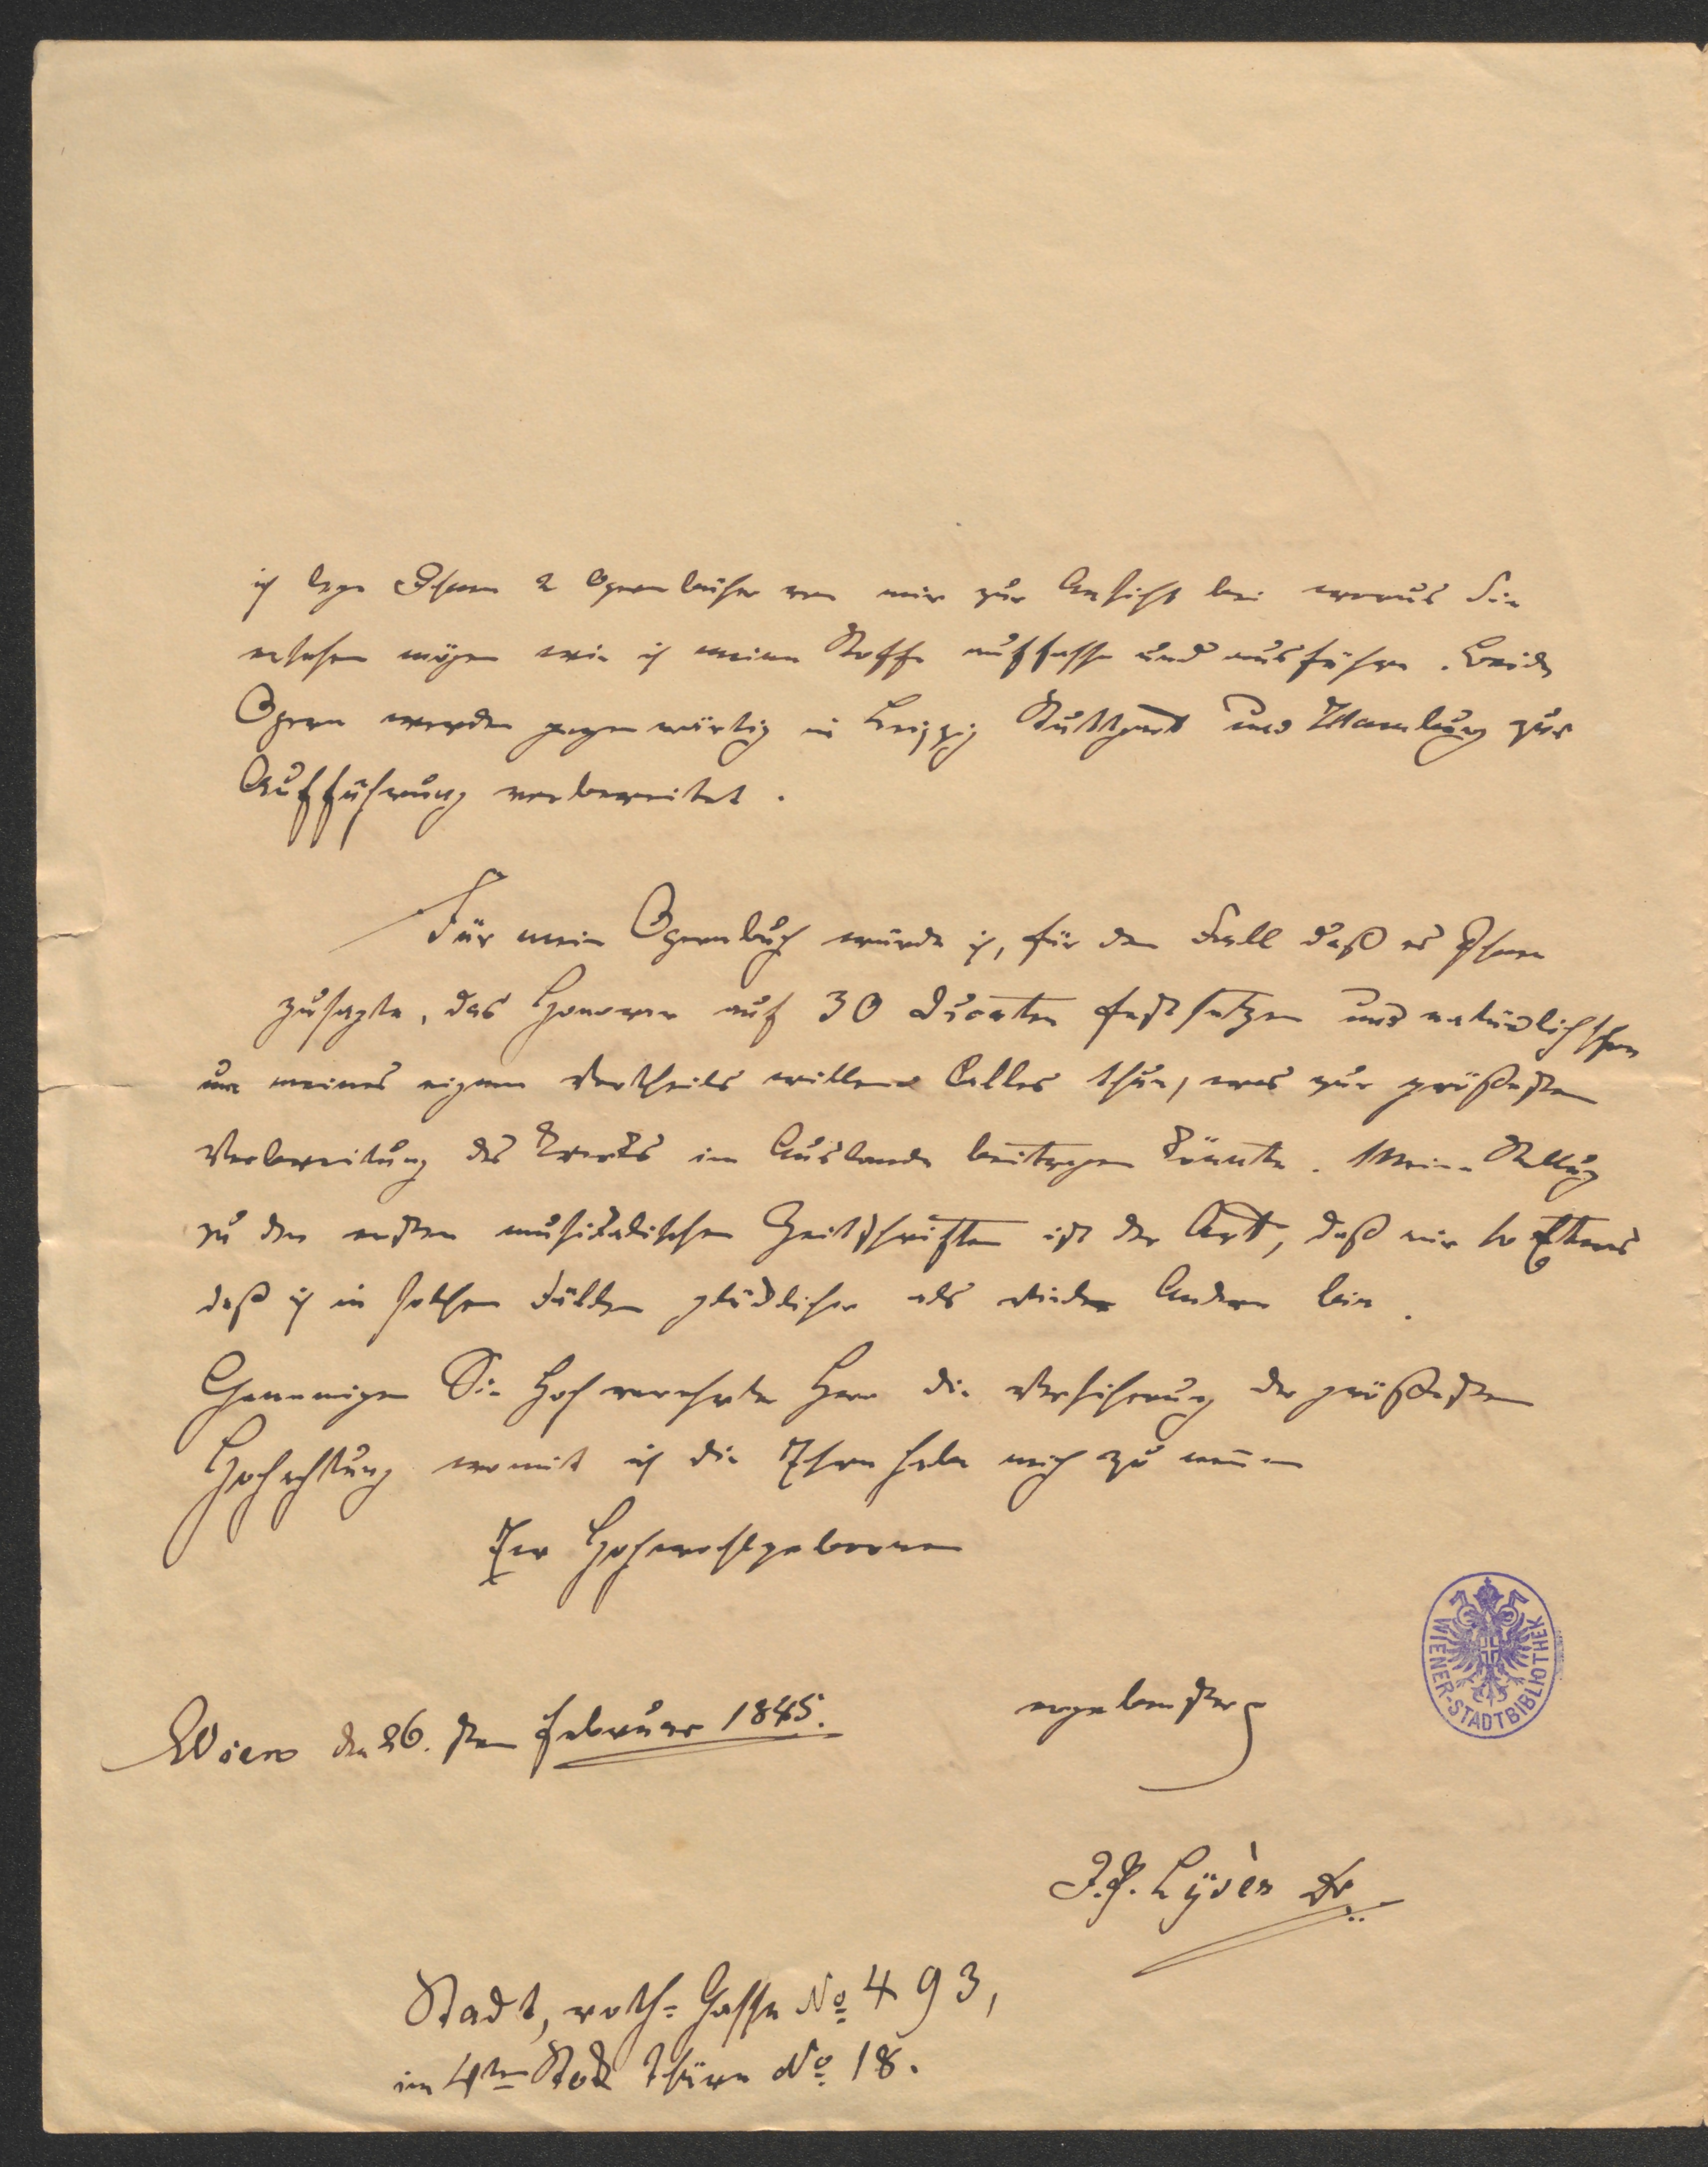 ich lege Ihnen 2 Opernbücher von mir zur Ansicht bei woraus Sie
ersehen mögen wie ich meine Stoffe auffasse und ausführe. Beide
Opern werden gegenwärtig in Leipzig Stuttgart und Hamburg zur
Aufführung vorbereitet.
Für mein Opernbuch würde ich, für den Fall daß es Ihnen
zusagte, das Honorar auf 30 Ducaten festsetzen und natürlich schon
um meines eigenen Vortheils willen Alles thun, was zur größesten
Verbreitung des Werks im Auslande beitragen könnte. Meine Stellung
zu den ersten musikalischen Zeitschriften ist der Art, daß mir so Etwas
daß ich in solchen Fällen glücklicher als viele Andere bin.
Genemigen Sie Hochverehrter Herr die Versicherung der größesten
Hochachtung womit ich die Ehre habe mich zu nennen
Euer Hochwohlgeboren
ergebenster
Wien den 26.sten Februar 1845.
J. P. Lyser Dr.
Stadt, roth-Gasse No 493,
im 4ten Stock Thüre No 18.
WIENER-STADTBIBLIOTHEK